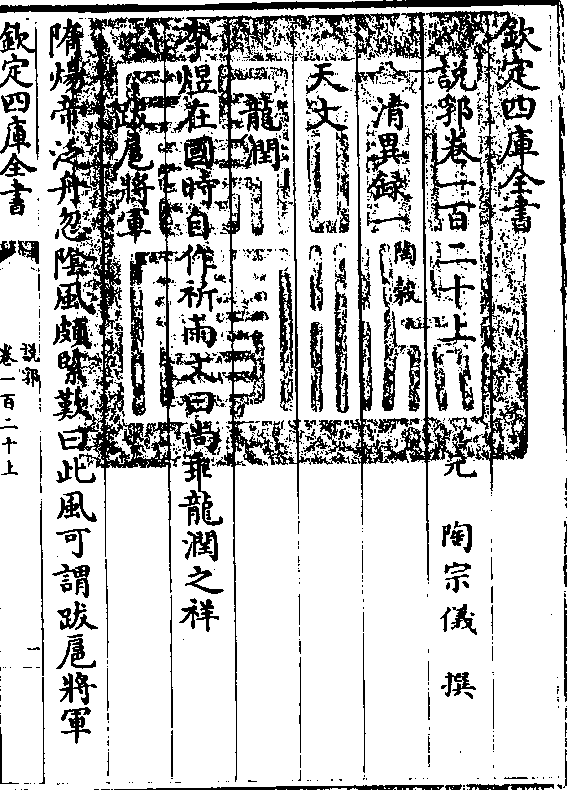 欽定四庫全書
說郛卷一百二十上 元 陶宗儀 撰
清異録一 陶穀
天文
龍潤
李煜在國時自作祈雨文曰尚乖龍潤之祥
跋扈將軍
隋煬帝泛舟忽陰風頗緊歎曰此風可謂跋扈將軍
欽定四庫全書
說郛
卷一百二十上
一